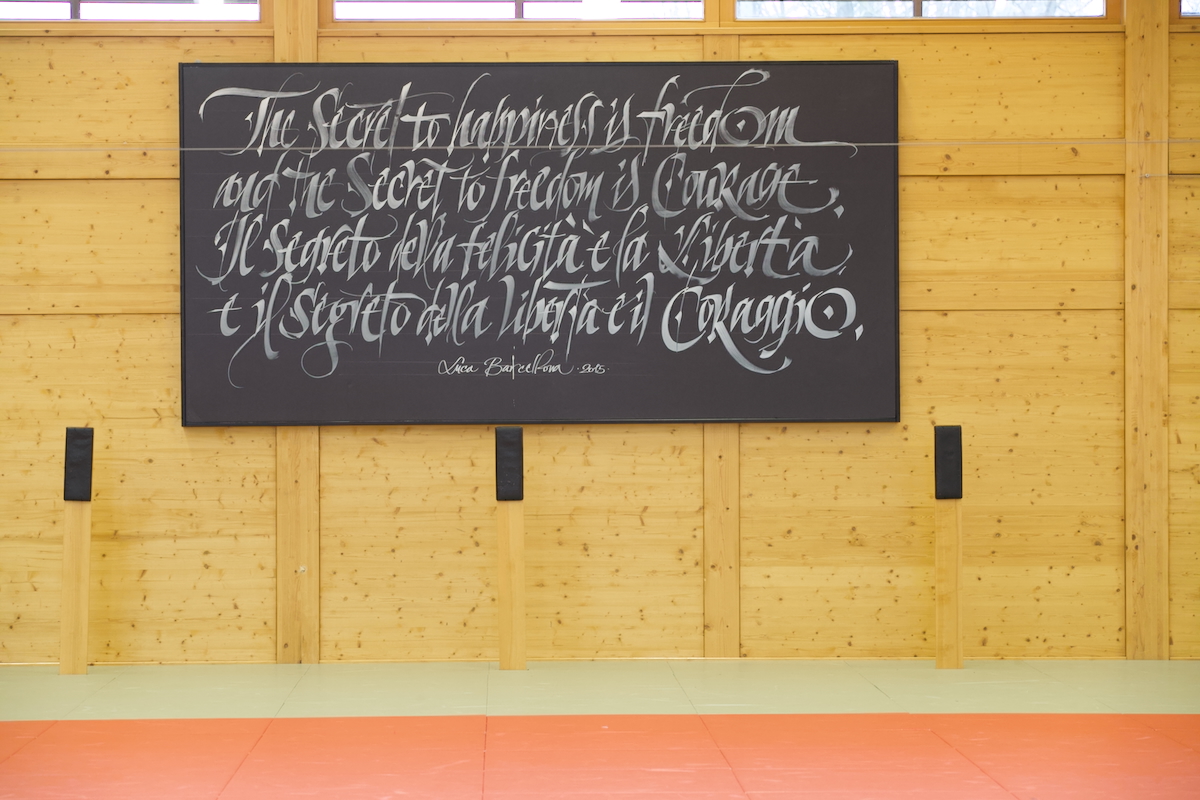 The Secret to happiness is freedom
and the Secret to freedom is Courage.
Il Segreto della felicità è la Libertà,
e il Segreto della libertà è il Coraggio.
Luca Barcellona · 2015 ·